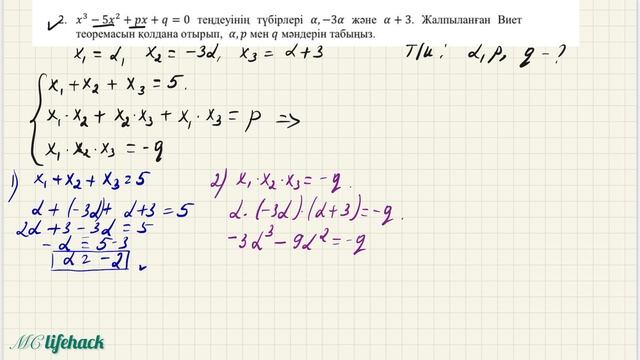 2. x³ − 5x² + px + q = 0 теңдеуінің түбірлері α, −3α және α + 3. Жалпыланған Виет
теоремасын қолдана отырып, α, p мен q мәндерін табыңыз.
x₁ = α, x₂ = −3α, x₃ = α + 3 Т/к: α, p, q − ?
x₁ + x₂ + x₃ = 5.
x₁ · x₂ + x₂ · x₃ + x₁ · x₃ = p =>
x₁ · x₂ · x₃ = − q
1) x₁ + x₂ + x₃ = 5
α + (−3α) + α + 3 = 5
2α + 3 − 3α = 5
− α = 5 − 3
α = −2
2) x₁ · x₂ · x₃ = − q.
α · (−3α) · (α + 3) = − q.
−3α³ − 9α² = − q
MC lifehack